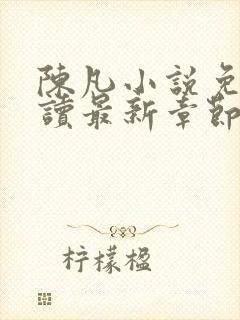 陳凡小說免
讀最新章節
柠檬楹